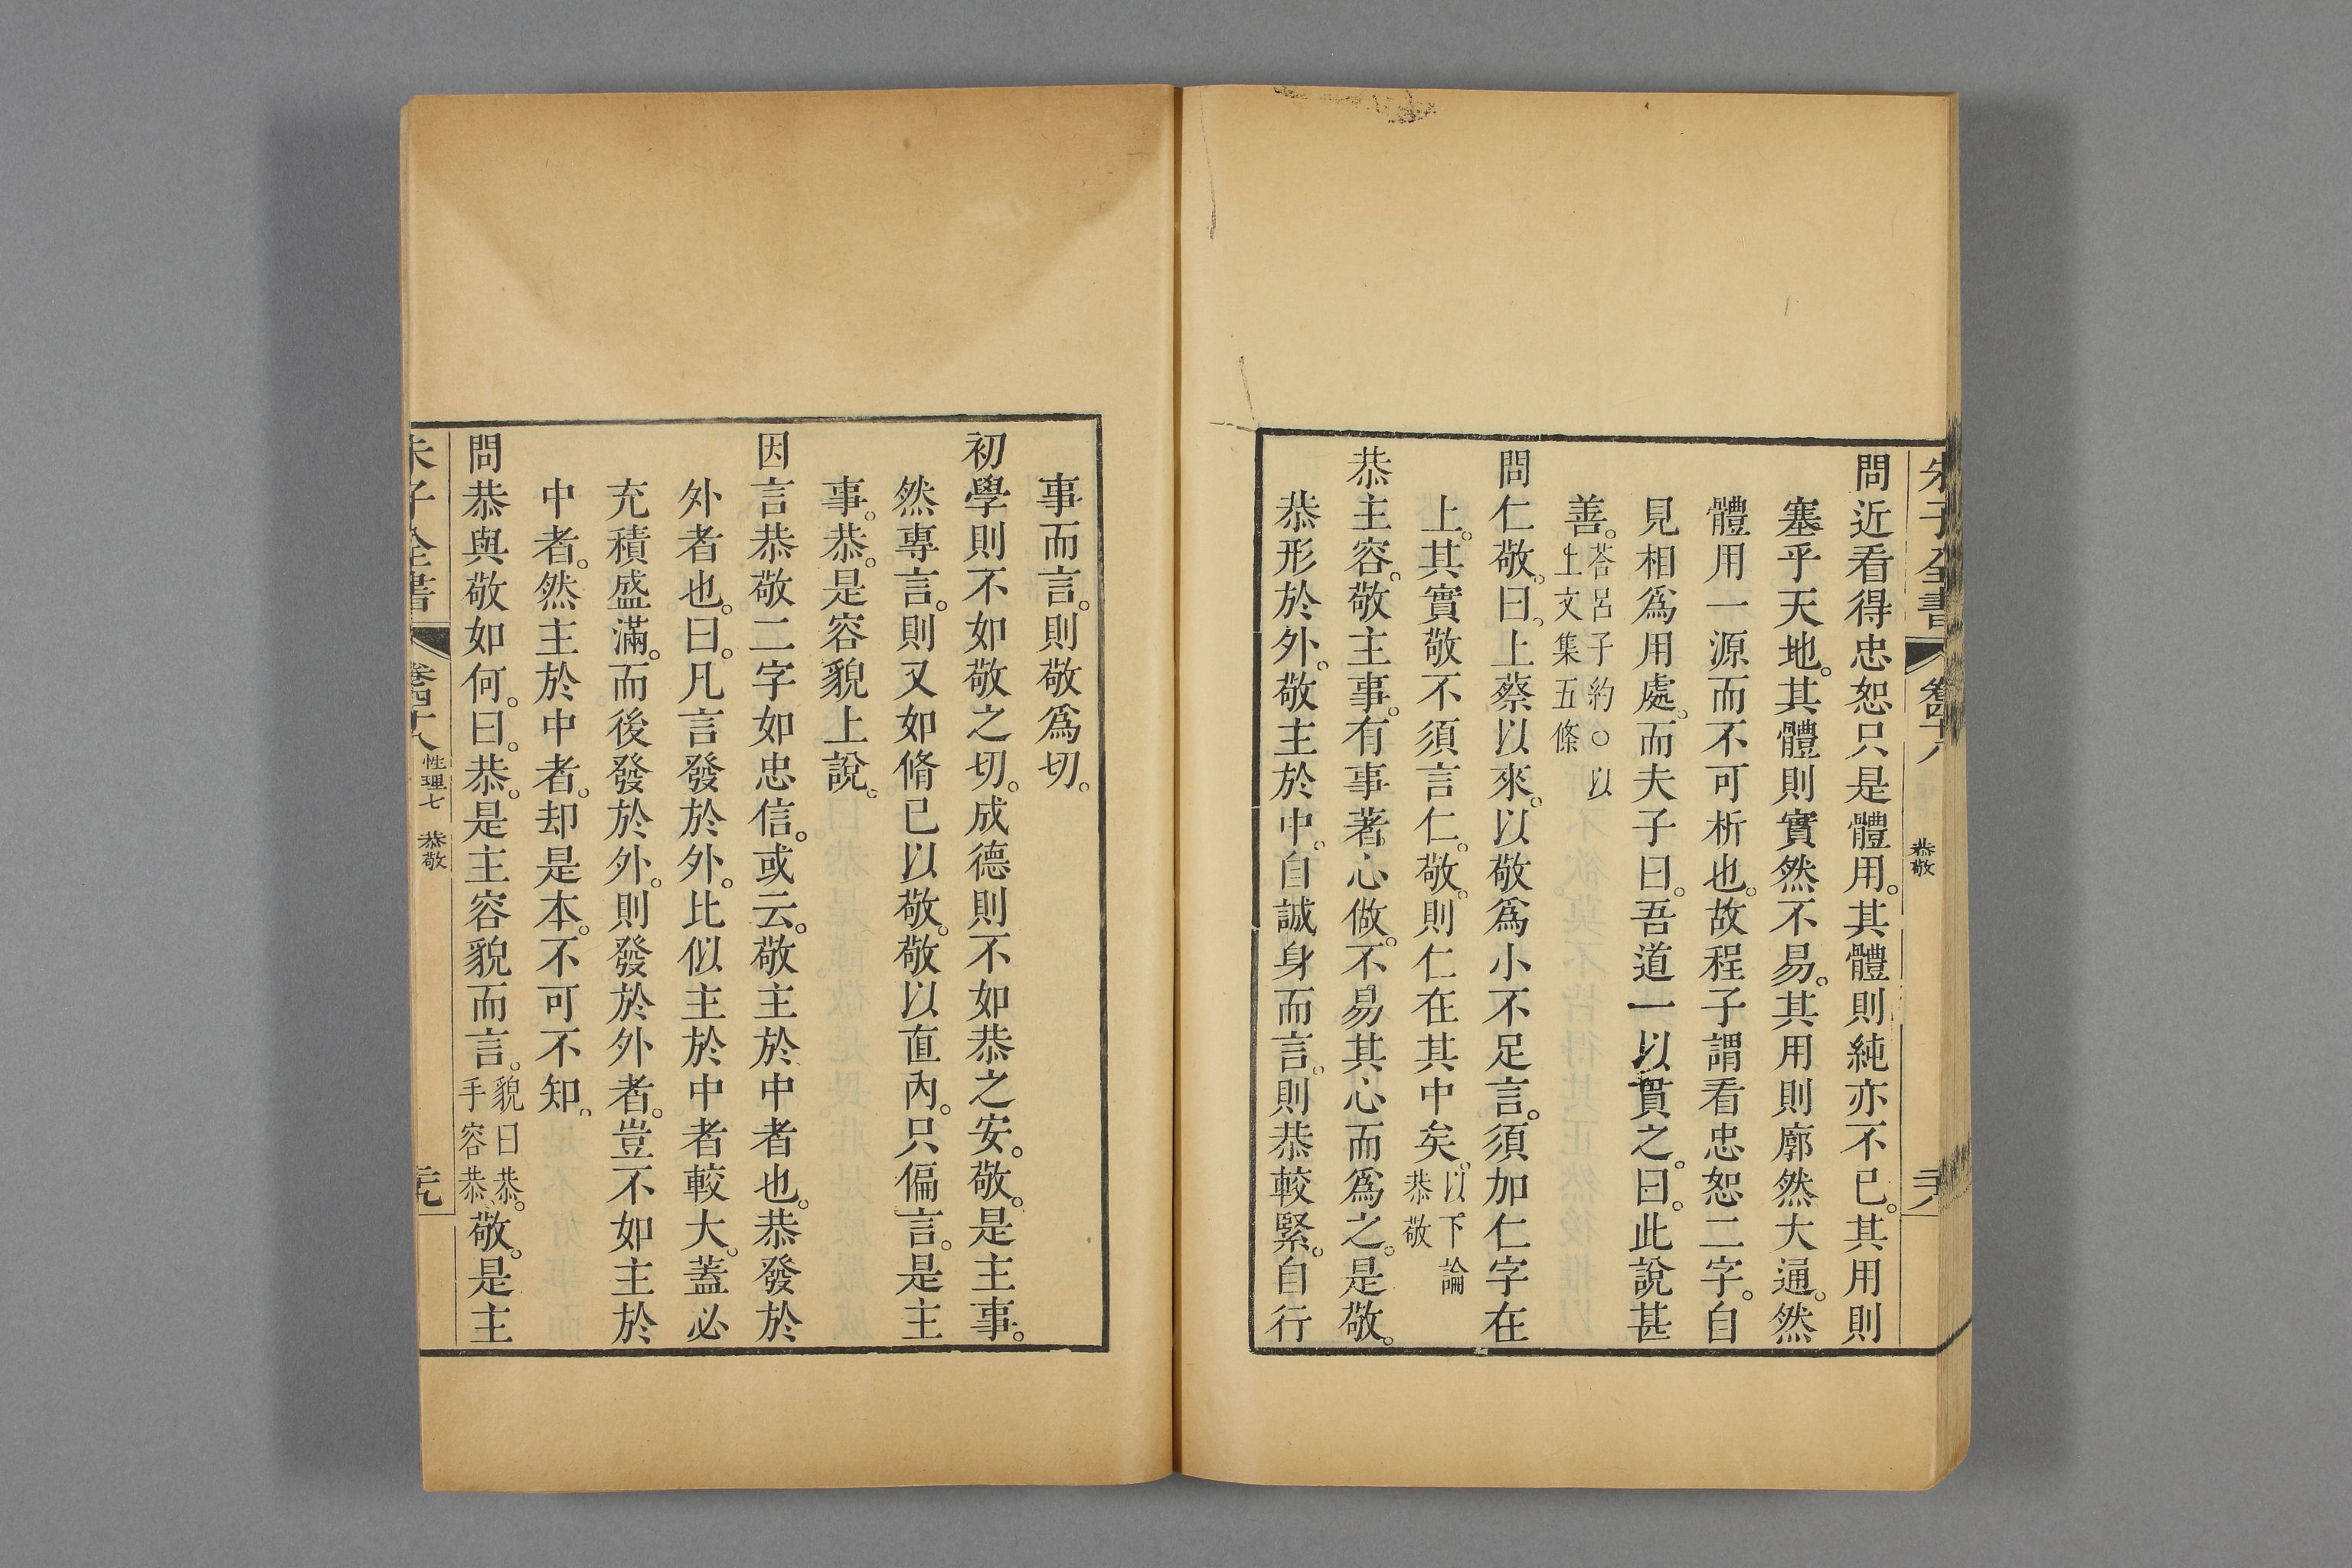 朱子全書 卷四十八 恭敬 三十八
問近看得忠恕只是體用。其體則純亦不已。其用則
塞乎天地。其體則實然不易。其用則廓然大通。然
體用一源而不可析也。故程子謂看忠恕二字。自
見相爲用處。而夫子曰。吾道一以貫之。曰。此說甚
善。荅呂子約〇以上文集五條
問仁敬。曰。上蔡以來。以敬爲小不足言。須加仁字在
上。其實敬不須言仁。敬。則仁在其中矣。以下論恭敬
恭主容。敬主事。有事著心做。不易其心而爲之。是敬。
恭形於外。敬主於中。自誠身而言。則恭較緊。自行
事而言。則敬爲切。
初學則不如敬之切。成德則不如恭之安。敬。是主事。
然專言。則又如脩已以敬。敬以直內。只偏言。是主
事。恭。是容貌上說。
因言恭敬二字如忠信。或云。敬主於中者也。恭發於
外者也。曰。凡言發於外。比似主於中者較大。蓋必
充積盛滿。而後發於外。則發於外者。豈不如主於
中者。然主於中者。却是本。不可不知。
問恭與敬如何。曰。恭。是主容貌而言。貌曰恭。手容恭、敬。是主
朱子全書 卷四十八 性理七 恭敬 三十九